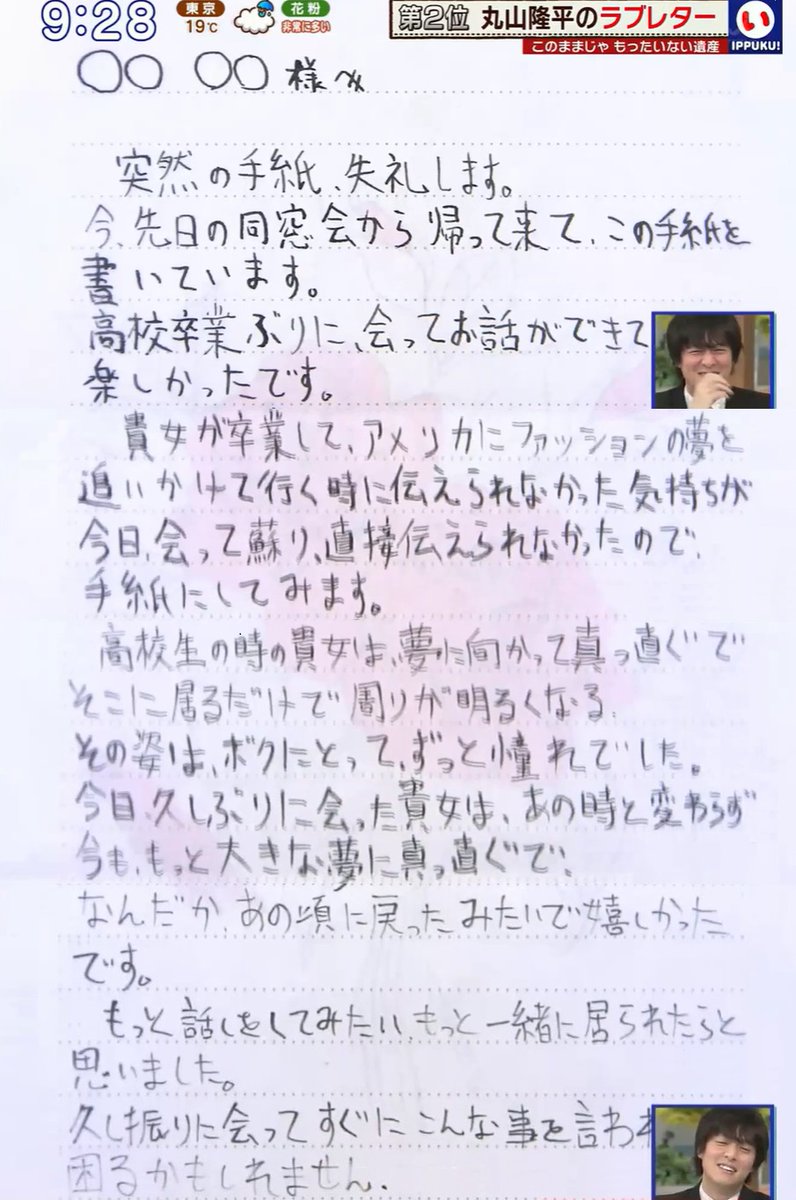 9:28
東京
19℃
花粉
非常に多い
第2位 丸山隆平のラブレター
い
IPPUKU!
このままじゃ もったいない遺産
〇〇 〇〇 様へ
突然の手紙、失礼します。
今、先日の同窓会から帰って来て、この手紙を
書いています。
高校卒業ぶりに、会ってお話ができて
楽しかったです。
貴女が卒業して、アメリカにファッションの夢を
追いかけて行く時に伝えられなかった気持ちが
今日、会って蘇り、直接伝えられなかったので、
手紙にしてみます。
高校生の時の貴女は、夢に向かって真っ直ぐで
そこに居るだけで周りが明るくなる、
その姿は、ボクにとって、ずっと憧れでした。
今日、久しぶりに会った貴女は、あの時と変わらず
今も、もっと大きな夢に真っ直ぐで、
なんだか、あの頃に戻ったみたいで嬉しかった
です。
もっと話しをしてみたい、もっと一緒に居られたらと
思いました。
久し振りに会ってすぐにこんな事を言わ
困るかもしれません。